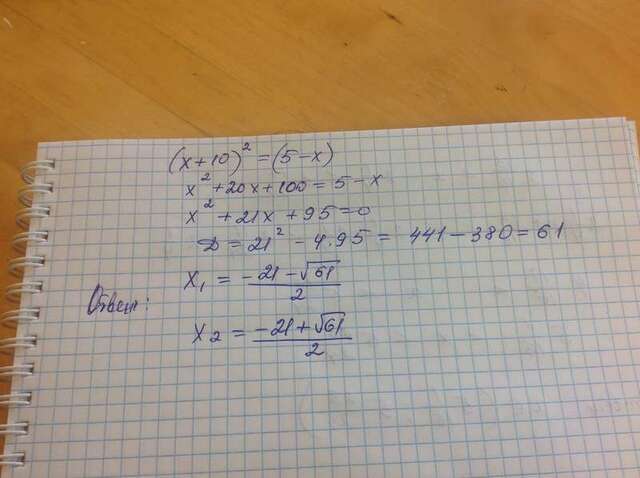 (x+10)² = (5-x)
x² + 20x + 100 = 5 - x
x² + 21x + 95 = 0
D = 21² - 4·95 = 441 - 380 = 61
x₁ = (-21-√61)/2
Ответ:
x₂ = (-21+√61)/2